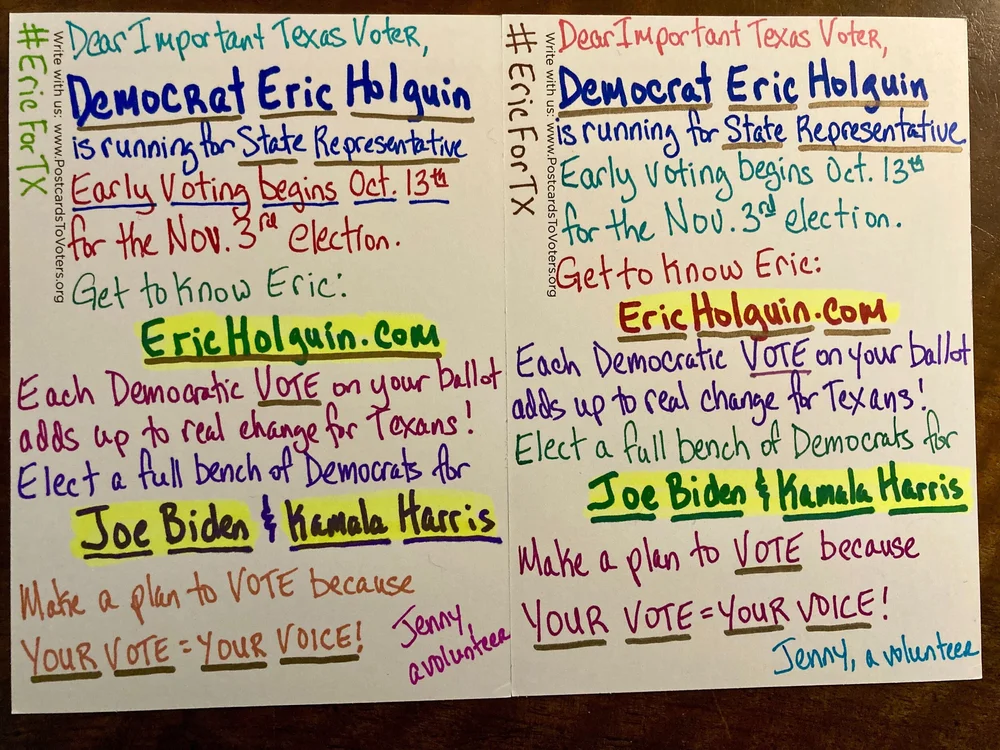 #EricForTX
Write with us: www.PostcardsToVoters.org
Dear Important Texas Voter,
Democrat Eric Holguin
is running for State Representative
Early Voting begins Oct. 13th
for the Nov. 3rd election.
Get to know Eric:
EricHolguin.com
Each Democratic VOTE on your ballot
adds up to real change for Texans!
Elect a full bench of Democrats for
Joe Biden & Kamala Harris
Make a plan to VOTE because
YOUR VOTE = YOUR VOICE!
Jenny,
a volunteer
#EricForTX
Write with us: www.PostcardsToVoters.org
Dear Important Texas Voter,
Democrat Eric Holguin
is running for State Representative
Early Voting begins Oct. 13th
for the Nov. 3rd election.
Get to know Eric:
EricHolguin.com
Each Democratic VOTE on your ballot
adds up to real change for Texans!
Elect a full bench of Democrats for
Joe Biden & Kamala Harris
Make a plan to VOTE because
YOUR VOTE = YOUR VOICE!
Jenny, a volunteer